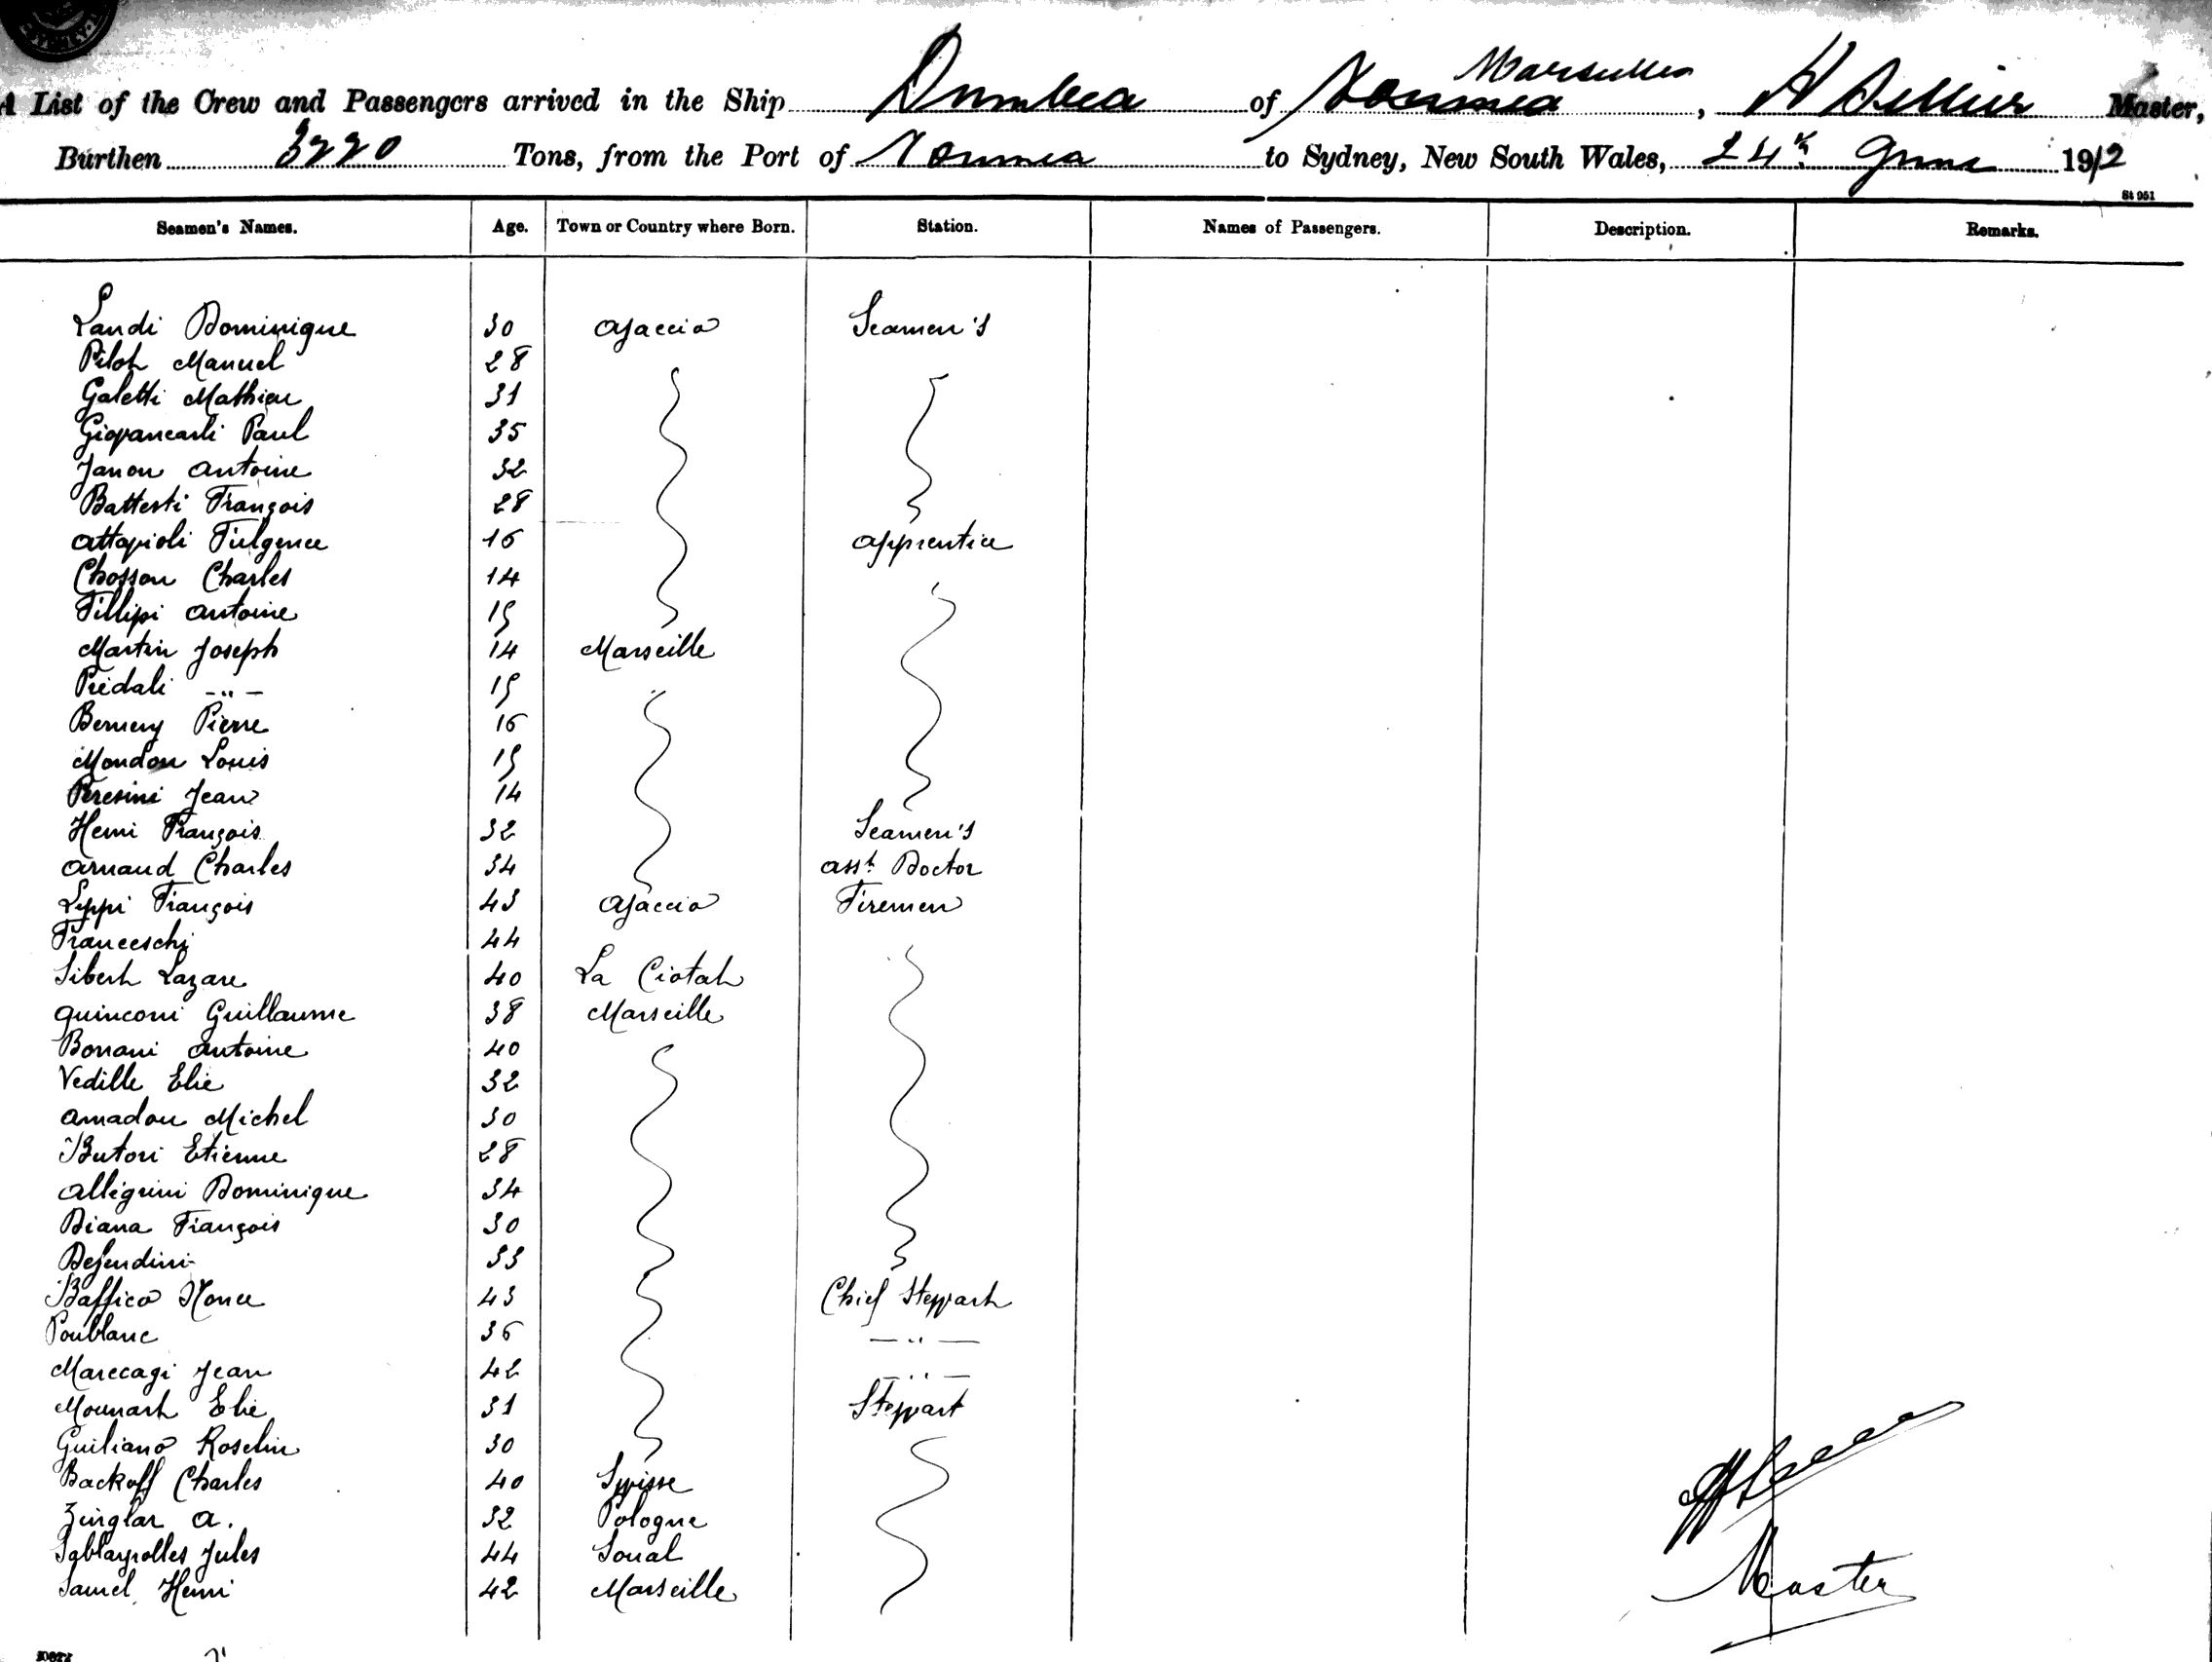 A List of the Crew and Passengers arrived in the Ship Dumbea of Noumea Marseilles, Master,
Burthen 3220 Tons, from the Port of Noumea to Sydney, New South Wales, 24th June 1912
St 951
Seamen's Names. Age. Town or Country where Born. Station. Names of Passengers. Description. Remarks.
Landi Dominique 30 Ajaccio Seamen's
Piloh Manuel 28
Galetti Mathieu 31
Giovancarli Paul 35
Janon Antoine 32
Battesti François 28
Attavioli Fulgence 16 Apprentice
Chosson Charles 14
Fillipi Antoine 15
Martin Joseph 14 Marseille
Piedali -"- 15
Bernery Pierre 16
Mondon Louis 15
Peresini Jean 14
Henri François 32 Seamen's
Arnaud Charles 34 Asst Doctor
Leppi François 43 Ajaccio Firemen
Franceschi 44
Sibert Lazare 40 La Ciotat
Quinconi Guillaume 38 Marseille
Bonani Antoine 40
Vedille Elie 32
Amadou Michel 30
Butori Etienne 28
Allegrini Dominique 34
Diana François 30
Defendini 33
Baffico Honce 43 Chief Stewart
Poublanc 36 — " —
Marccagi Jean 42 — " —
Mounart Elie 31 Stewart
Guiliano Roselin 30
Backoff Charles 40 Swisse
Zinglar A. 32 Pologne
Sablayrolles Jules 44 Soual
Samel Henri 42 Marseille
Master